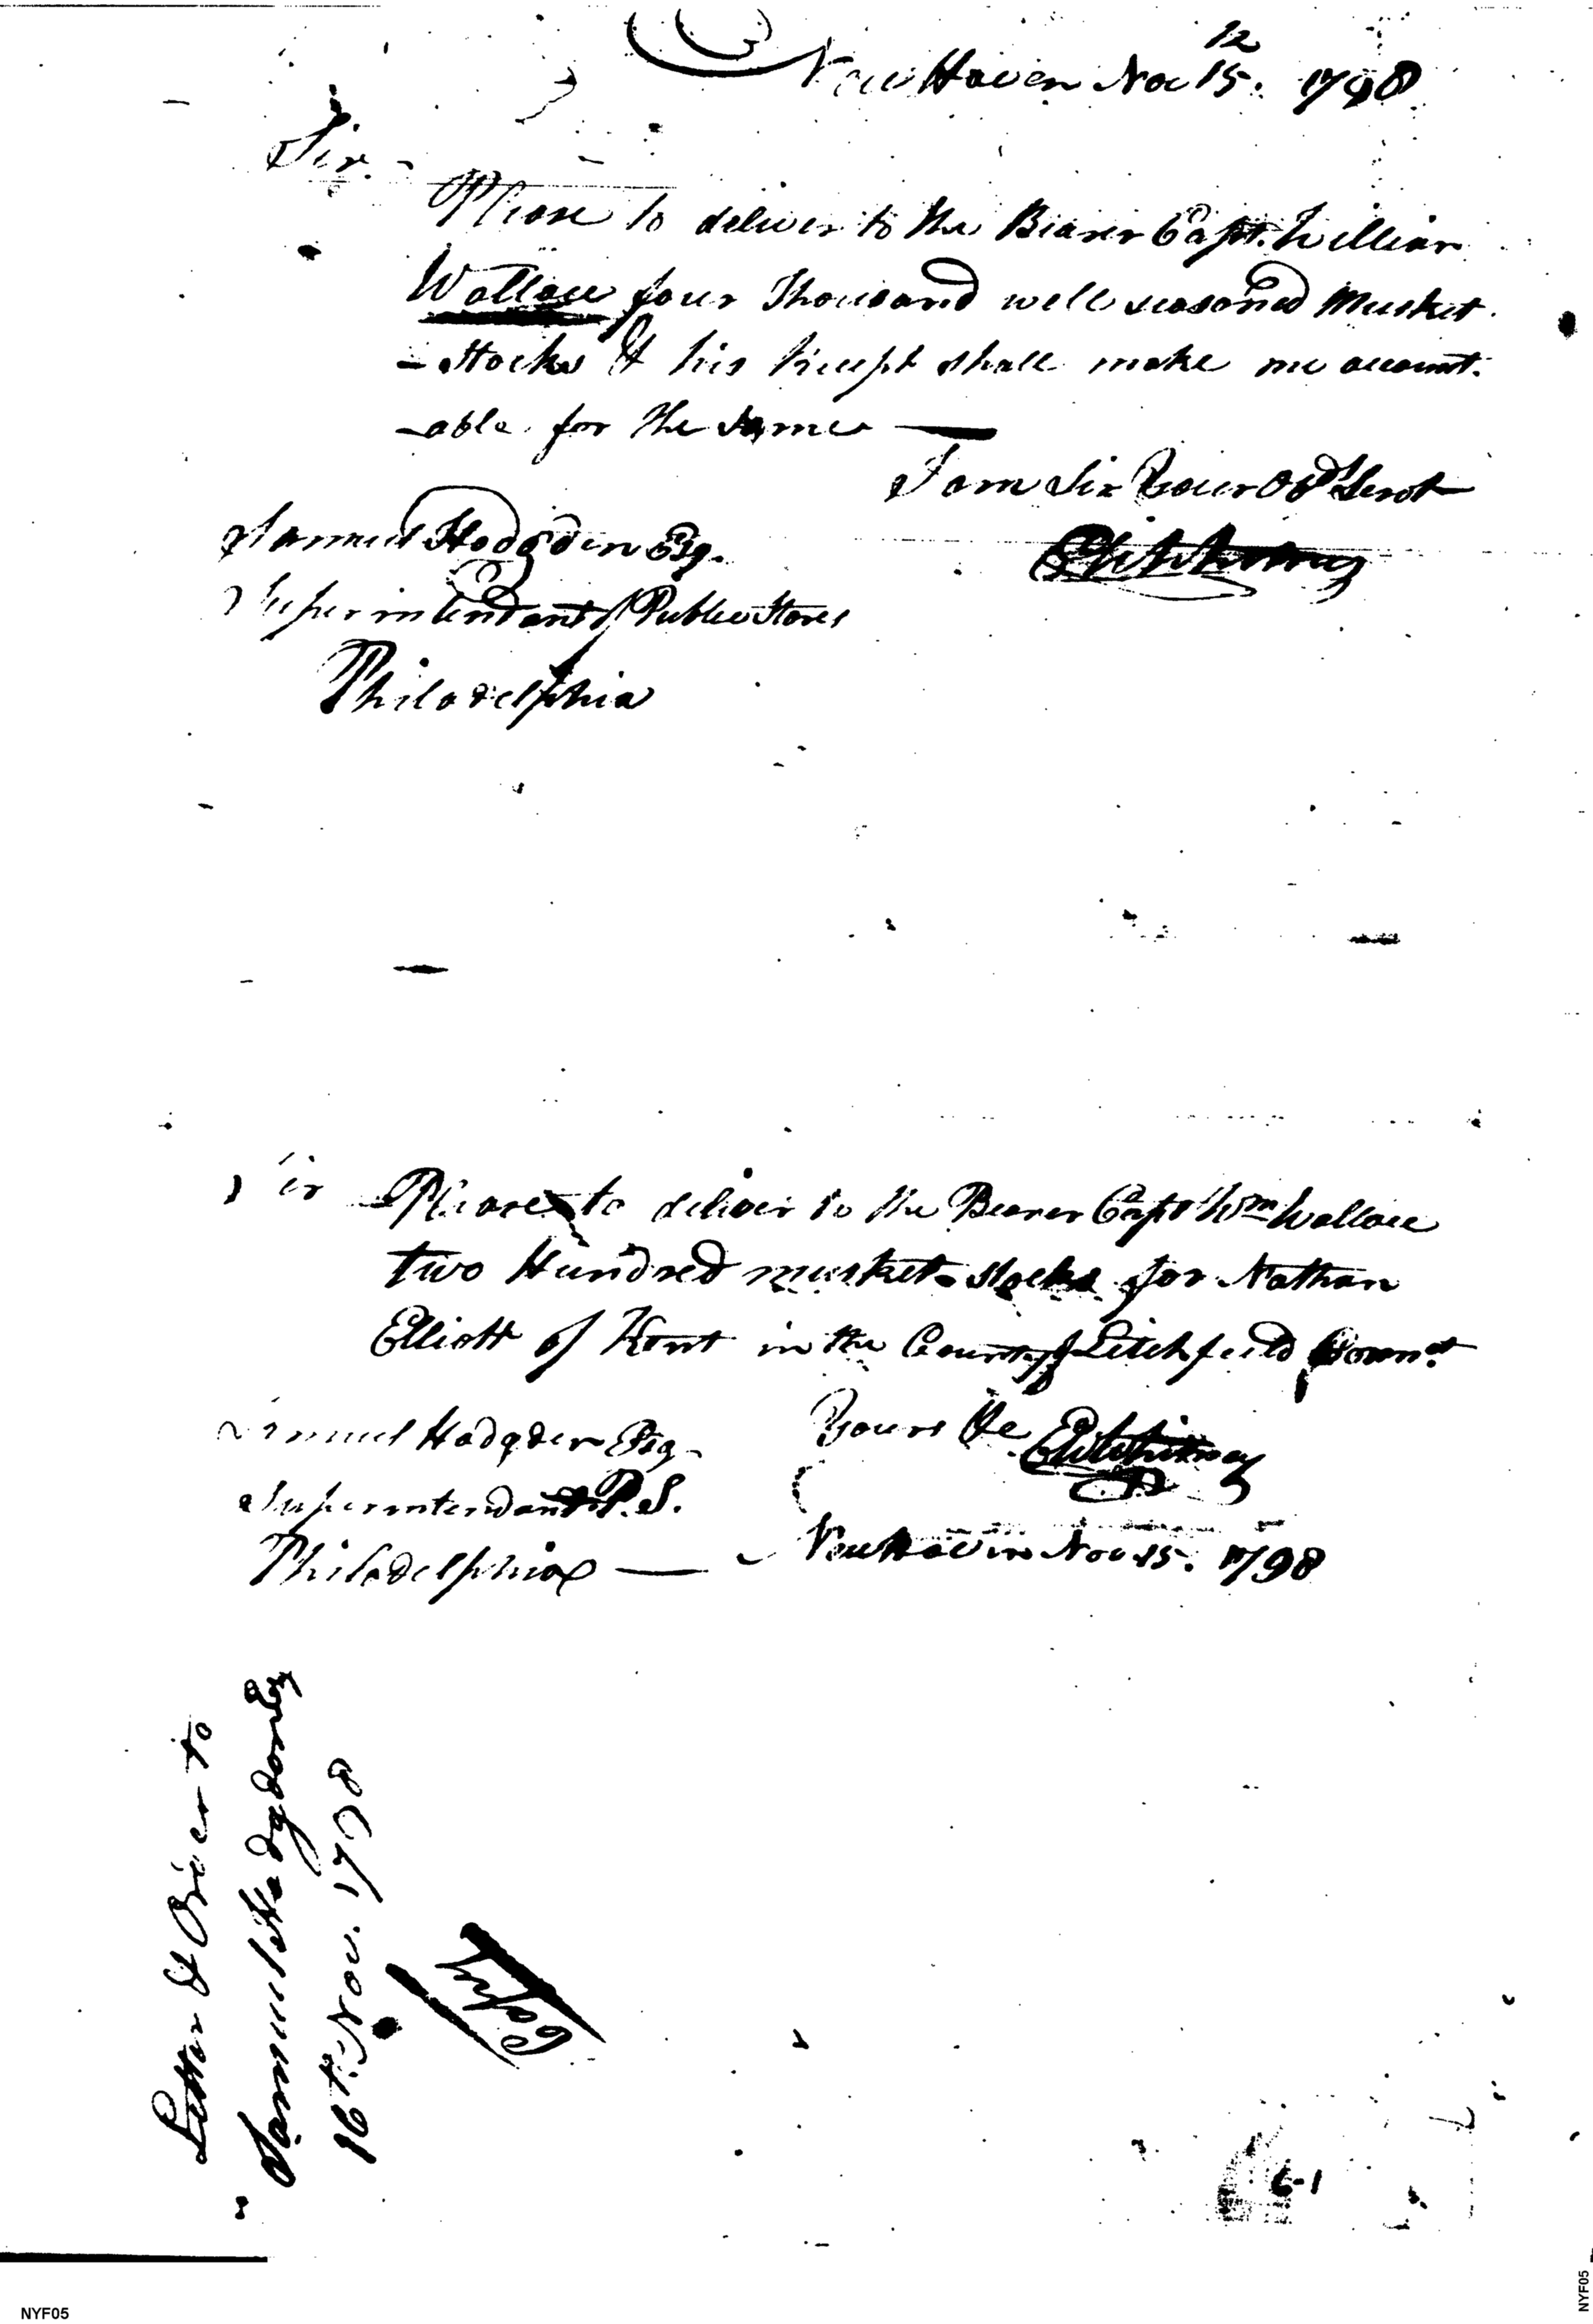 12
New Haven Nov 15. 1798
Sir.
Please to deliver to the Bearer Capt. William
Wallace four Thousand well seasoned Musket
-Stocks & his Receipt shall make me account.
-able for the same —
I am Sir Your Obdt Servt
Eli Whitney
Samuel Hodgden Esq.
Superintendant of Public Stores
Philadelphia
Sir Please to deliver to the Bearer Capt Wm Wallace
two Hundred musket-stocks for Nathan
Elliott of Kent in the County of Litchfield Connt
Yours &c Eli Whitney
Samuel Hodgden Esq
Superintendant P. S.
Philadelphia — New Haven Nov 15. 1798
Letter & Order to
Samuel Hodgdon Esq
16th Nov. 1798
Copy
6-1
NYF05
NYF05